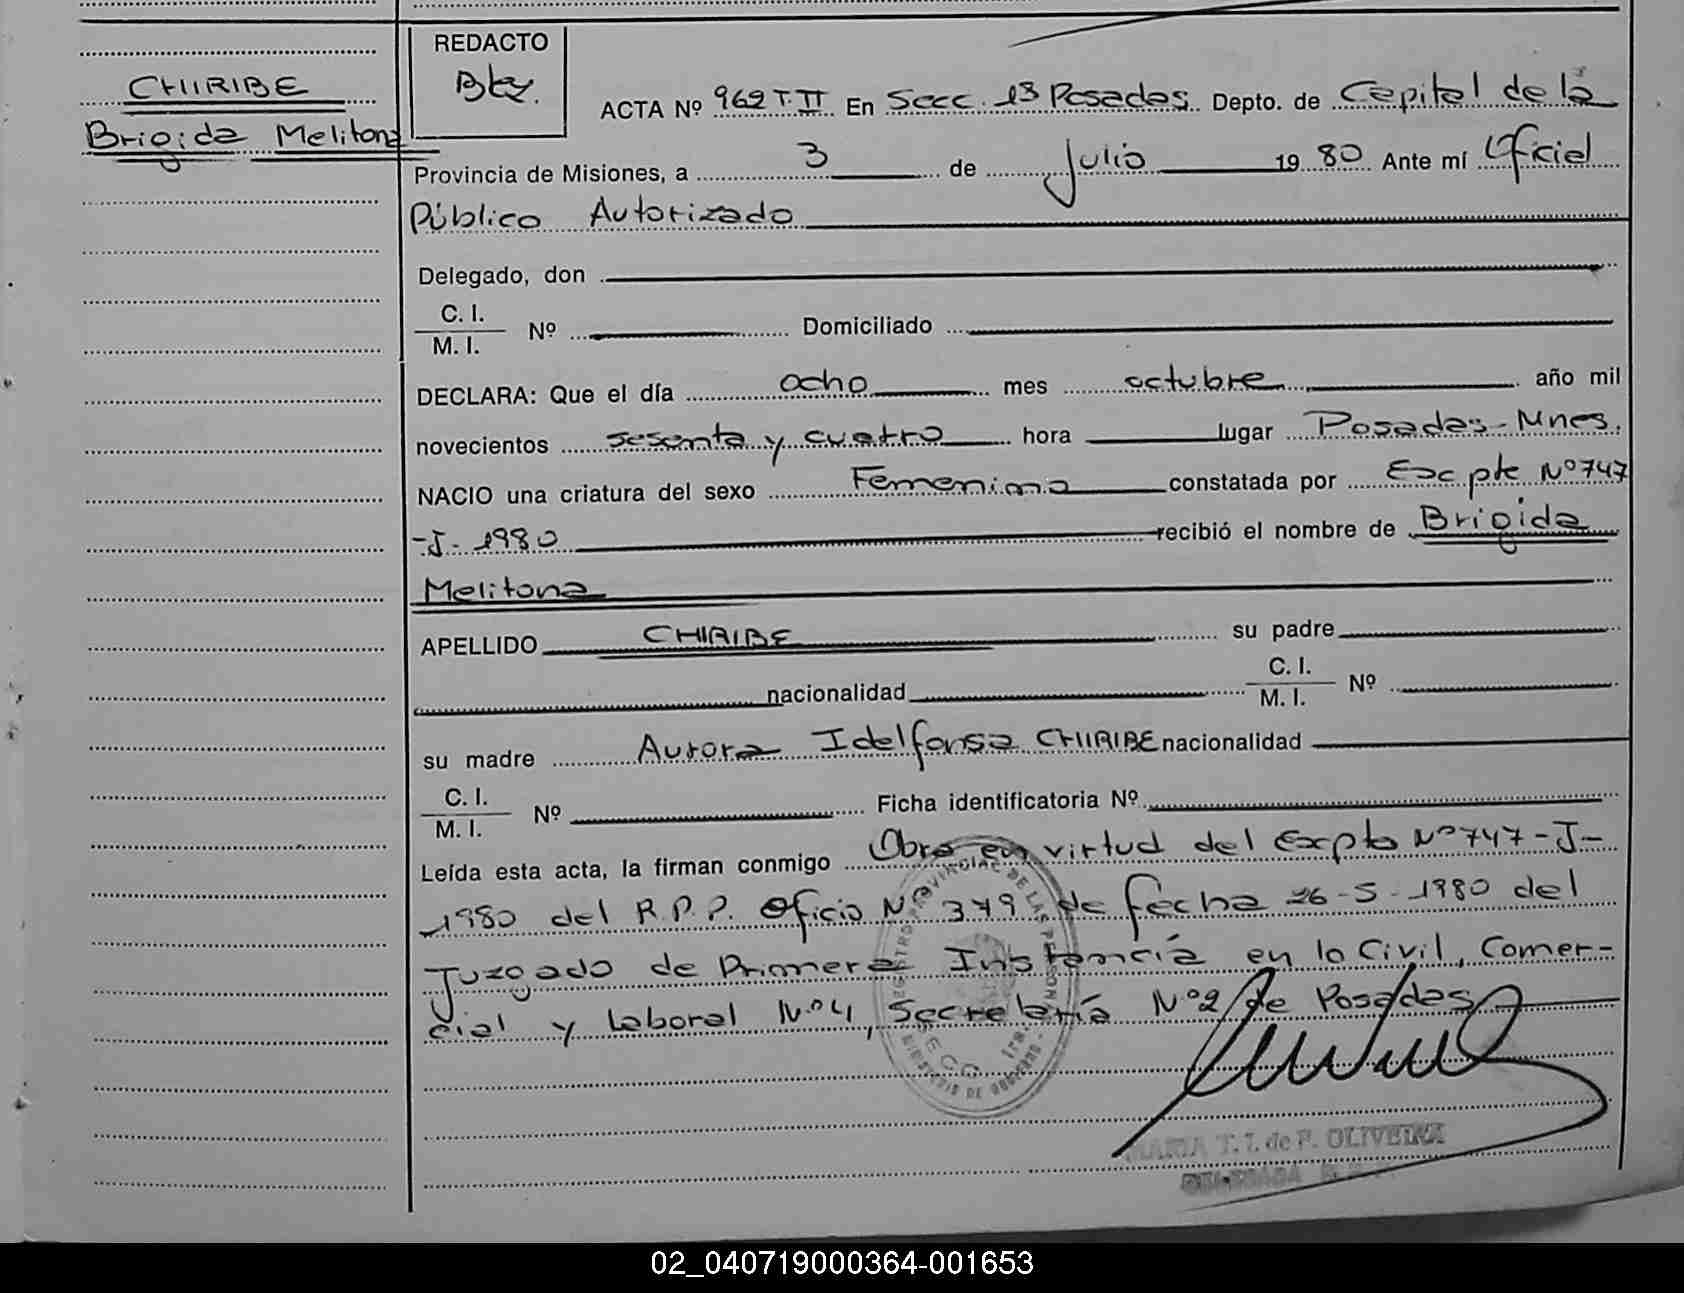 REDACTO
CHIRIBE
Brigida Melitona
ACTA Nº 962 T.II En Secc. 1ª Posadas Depto. de Capital de la
Provincia de Misiones, a 3 de Julio 1980 Ante mí Oficial
Público Autorizado
Delegado, don
C. I.
M. I. Nº Domiciliado
DECLARA: Que el día ocho mes octubre año mil
novecientos sesenta y cuatro hora lugar Posadas-Mnes.
NACIO una criatura del sexo Femenino constatada por Excpte Nº 747
-J-1980 recibió el nombre de Brigida
Melitona
APELLIDO CHIRIBE su padre
nacionalidad C. I.
M. I. Nº
su madre Aurora Idelfonsa CHIRIBE nacionalidad
C. I.
M. I. Nº Ficha identificatoria Nº
Leída esta acta, la firman conmigo Obra en virtud del Expte Nº 747-J-
1980 del R.P.P. Oficio Nº 379 de fecha 26-5-1980 del
Juzgado de Primera Instancia en lo Civil, Comer-
cial y Laboral Nº 4, Secretaría Nº 2 de Posadas
REGISTRO PROVINCIAL DE LAS PERSONAS
SECC 1ra.
MINISTERIO DE GOBIERNO
MARIA T. I. de F. OLIVEIRA
DELEGADA
02_040719000364-001653